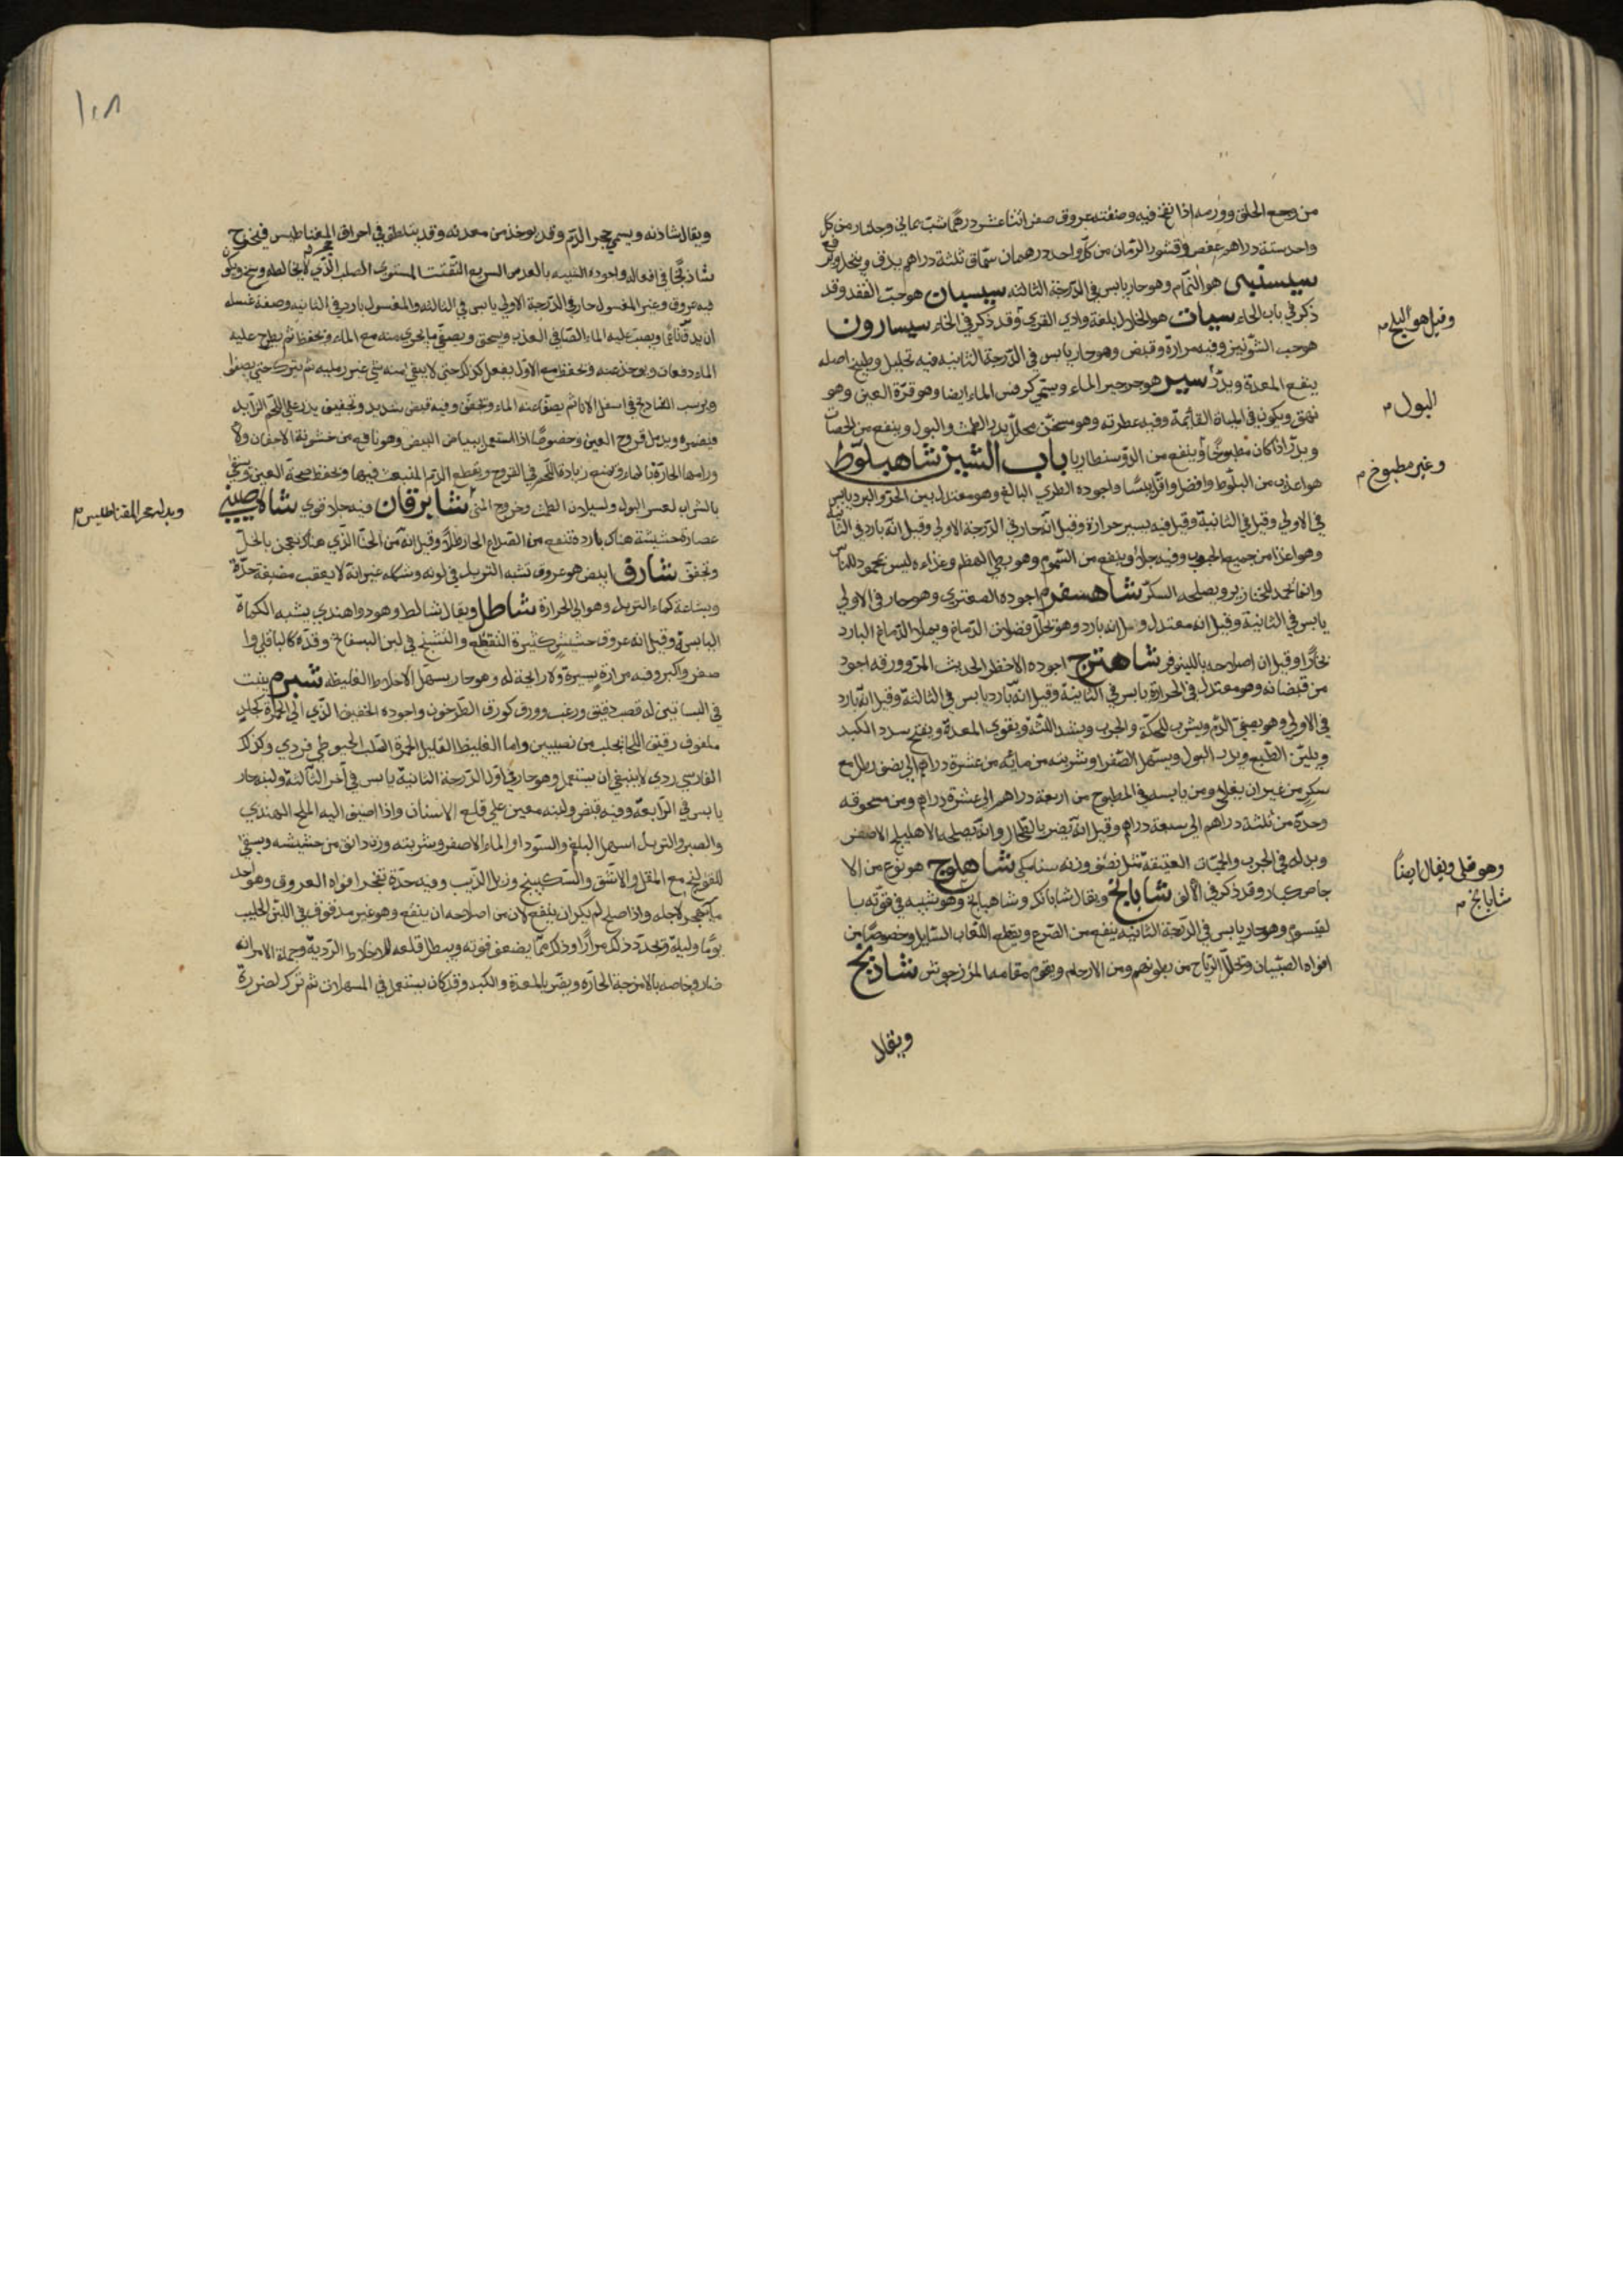 من وجع الحلق وورمه اذا نفخ فيه وصفته عروق صفر اثنا عشر درهما شب يماني وجلنار من كل
واحد ستة دراهم عفص وقشور الرمان من كل واحد درهمان سماق ثلثة دراهم يدق وينخل ويرفع
سيسنبر هو النمام وهو حار يابس في الدرجة الثالثة سيسبان هو حب الفقد وقد
ذكر في باب الحاء سيان هو الخلال بلغة وادي القرى وقد ذكر في الخاء سيسارون
هو حب الشونيز وفيه مرارة وقبض وهو حار يابس في الدرجة الثانية فيه تحليل وطبيخ اصله
ينفع المعدة ويدر سير هو جرجير الماء ويسمى كرفس الماء ايضا وهو قرة العين وهو
نهري ويكون في المياه القائمة وفيه عطرية وهو مسخن محلل يدر الطمث والبول وينفع من الحصاة
ويدر اذا كان مطبوخا وينفع من الدوسنطاريا باب الشين شاهبلوط
هو اغذى من البلوط وافضل واقل يبسا واجوده الطري البالغ وهو معتدل بين الحر والبرد يابس
في الاولى وقيل في الثانية وقيل فيه يسير حرارة وقيل انه حار في الدرجة الاولى وقيل انه بارد في الثانية
وهو اغذا من جميع الحبوب وفيه جلا وينفع من السموم وهو بطي الهضم وغذاءه ليس بمحمود للناس
وانما يحمد للخنازير ويصلحه السكر شاهسفرم اجوده الصعتري وهو حار في الاولى
يابس في الثانية وقيل انه معتدل وقيل انه بارد وهو يحلل فضلات الدماغ ويملا الدماغ البارد
بخارا وقيل ان اصلاحه بالنينوفر شاهترج اجوده الاخضر الحديث المر وورقه اجود
من قضبانه وهو معتدل في الحرارة يابس في الثانية وقيل انه بارد يابس في الثالثة وقيل انه بارد
في الاولى وهو يصفي الدم ويشرب للحكة والجرب ويشد اللثة ويقوي المعدة ويفتح سدد الكبد
ويلين الطبع ويدر البول ويسهل الصفرا وشربته من مائه من عشرة دراهم الى نصف رطل مع
سكر من غير ان يغلى ومن يابسه في المطبوخ من اربعة دراهم الى عشرة دراهم ومن مسحوقه
وحده من ثلثة دراهم الى سبعة دراهم وقيل انه يضر بالطحال وانه يصلحه الاهليلج الاصفر
وبدله في الجرب والحميات العتيقة مثل نصف وزنه سنا مكي شاهلوج هو نوع من الا
جاص كبار وقد ذكر في الالف شابابج ويقال شابانك وشاهبانج وهو شبيه في قوته با
لقيسوم وهو حار يابس في الدرجة الثانية ينفع من الصرع ويقطع اللعاب السائل وخصوصا من
افواه الصبيان ويحلل الرياح من بطونهم ومن الارحام ويقوم مقامه المرزجوش شاذنج
ويقال
وقيل هو البلح م
البول م
وغير مطبوخ م
وهو قلى ويقال ايضا
شابابج م
١٠٨
ويقال شاذنه ويسمى حجر الدم وقد يوخذ من معدنه وقد يتلطف في احراق المغناطيس فيخرج
شاذنجا في افعاله واجوده الشبيه بالعدس السريع التفتت المستوي الصلب الذي لا يخالطه وسخ ويكون
فيه عروق وغير المغسول حار في الدرجة الاولى يابس في الثالثة والمغسول بارد في الثانية وصفة غسله
ان يدق ناعما ويصب عليه الماء الصافي العذب ويسحق ويصفى ما يجري منه مع الماء ويحفظ ثم يطرح عليه
الماء دفعات ويوخذ عنه ويحفظ مع الاول يفعل كذلك حتى لا يبقى منه شي غير رملية ثم يترك حتى يصفو
ويرسب الشاذنج في اسفل الاناء ثم يصفى عنه الماء ويجفف وفيه قبض شديد وتجفيف يذر على اللحم الزايد
فيضمره ويدمل قروح العين وخصوصا اذا استعمل ببياض البيض وهو نافع من خشونة الاجفان ولا
ورامها الحارة بالماء ويمنع زيادة اللحم في القروح ويقطع الدم المنبعث فيها ويحفظ صحة العين ويسقى
بالشراب لعسر البول ولسيلان الطمث وخروج المني شابرقان فيه جلا قوي شاه صيني
عصارة حشيشة هناك باردة تنفع من الصداع الحار طلاء وقيل انه من الحنا الذي هناك يعجن بالخل
ويجفف شارف ابيض هو عروق تشبه التربد في لونه وشكله غير انه لا يعقب مضغه حدة
وبشاعة كماء التربد وهو الى الحرارة شاطل ويقال شالط وهو دوا هندي يشبه الكماة
اليابسة وقيل انه عروق حشيش كثيرة التقطع والتشنج في لين البسفايج وقده كالباقلي او ا
صغر واكبر وفيه مرارة يسيرة ولا رايحة له وهو حار يسهل الاخلاط الغليظة شبرم ينبت
في البساتين له قصب دقيق وزغب وورق كورق الطرخون واجوده الخفيف الذي الى الحمرة كجلد
ملفوف رقيق اللحا يجلب من نصيبين واما الغليظ القليل الحمرة الصلب الخيوطي فردي وكذلك
الفارسي ردي لا ينبغي ان يستعمل وهو حار في اول الدرجة الثانية يابس في آخر الثالثة ولبنه حار
يابس في الرابعة وفيه قبض ولبنه معين على قلع الاسنان واذا اضيف اليه الملح الهندي
والصبر والتربد اسهل البلغم والسودا والماء الاصفر وشربته وزن دانق من حشيشه ويسقى
للقولنج مع المقل والاشق والسكبينج وزبل الذيب وفيه حدة تفجر افواه العروق وهو احد
ما هجر لاجله واذا صلح لم يكد ان ينفع لان من اصلاحه ان ينقع وهو غير مدقوق في اللبن الحليب
يوما وليلة ويجدد ذلك مرارا وذلك مما يضعف قوته ويبطل قلعه للاخلاط الردية وجملة الامر انه
ضار وخاصة بالامزجة الحارة ويضر بالمعدة والكبد وقد كان يستعمل في المسهلات ثم ترك لضرره
وبدله حجر المقناطيس م